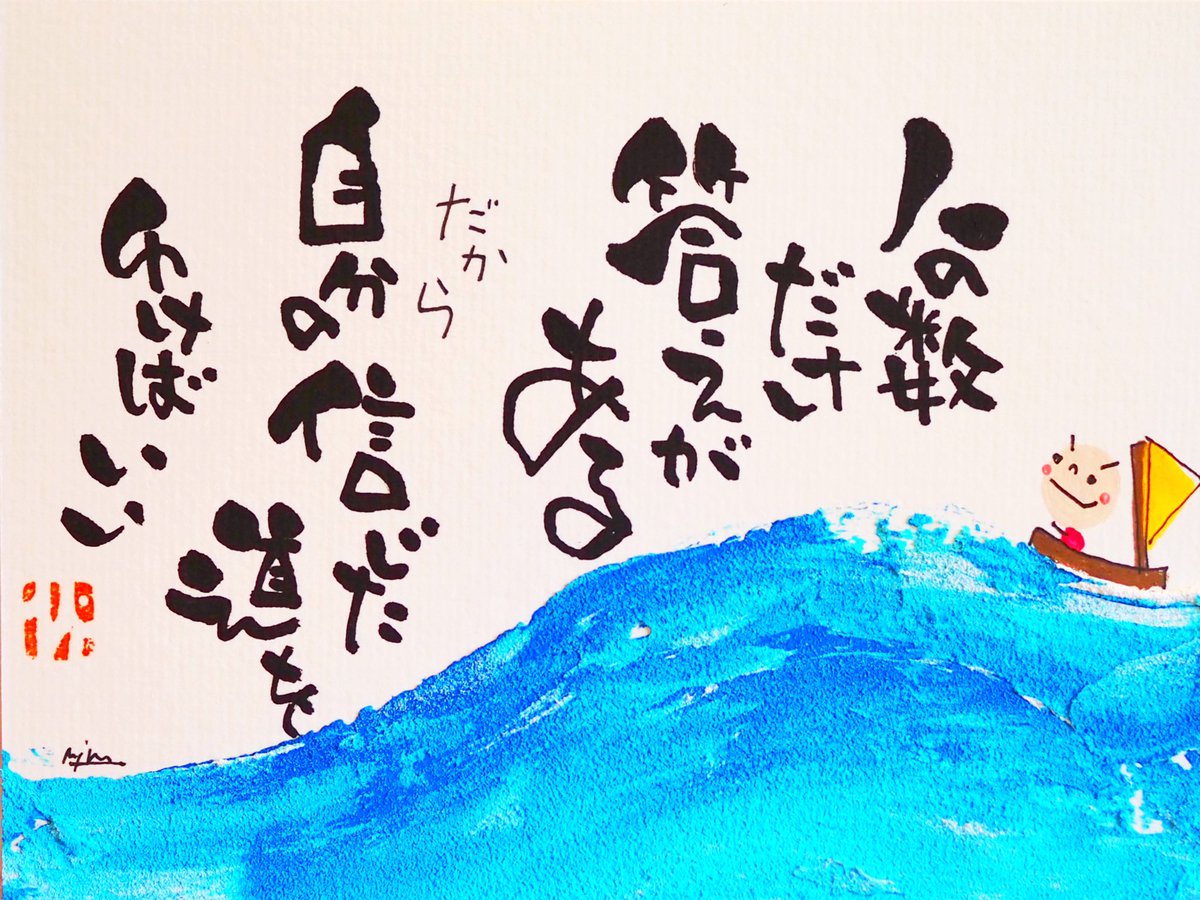 人の数
だけ
答えが
ある
だから
自分の信じた
道を
ゆけばいい